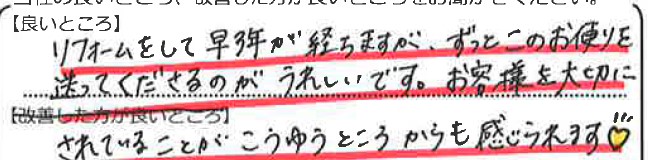 【良いところ】
リフォームをして早3年が経ちますが、ずっとこのお便りを
送ってくださるのがうれしいです。お客様を大切に
【改善した方が良いところ】
されていることがこうゆうところからも感じられます♡